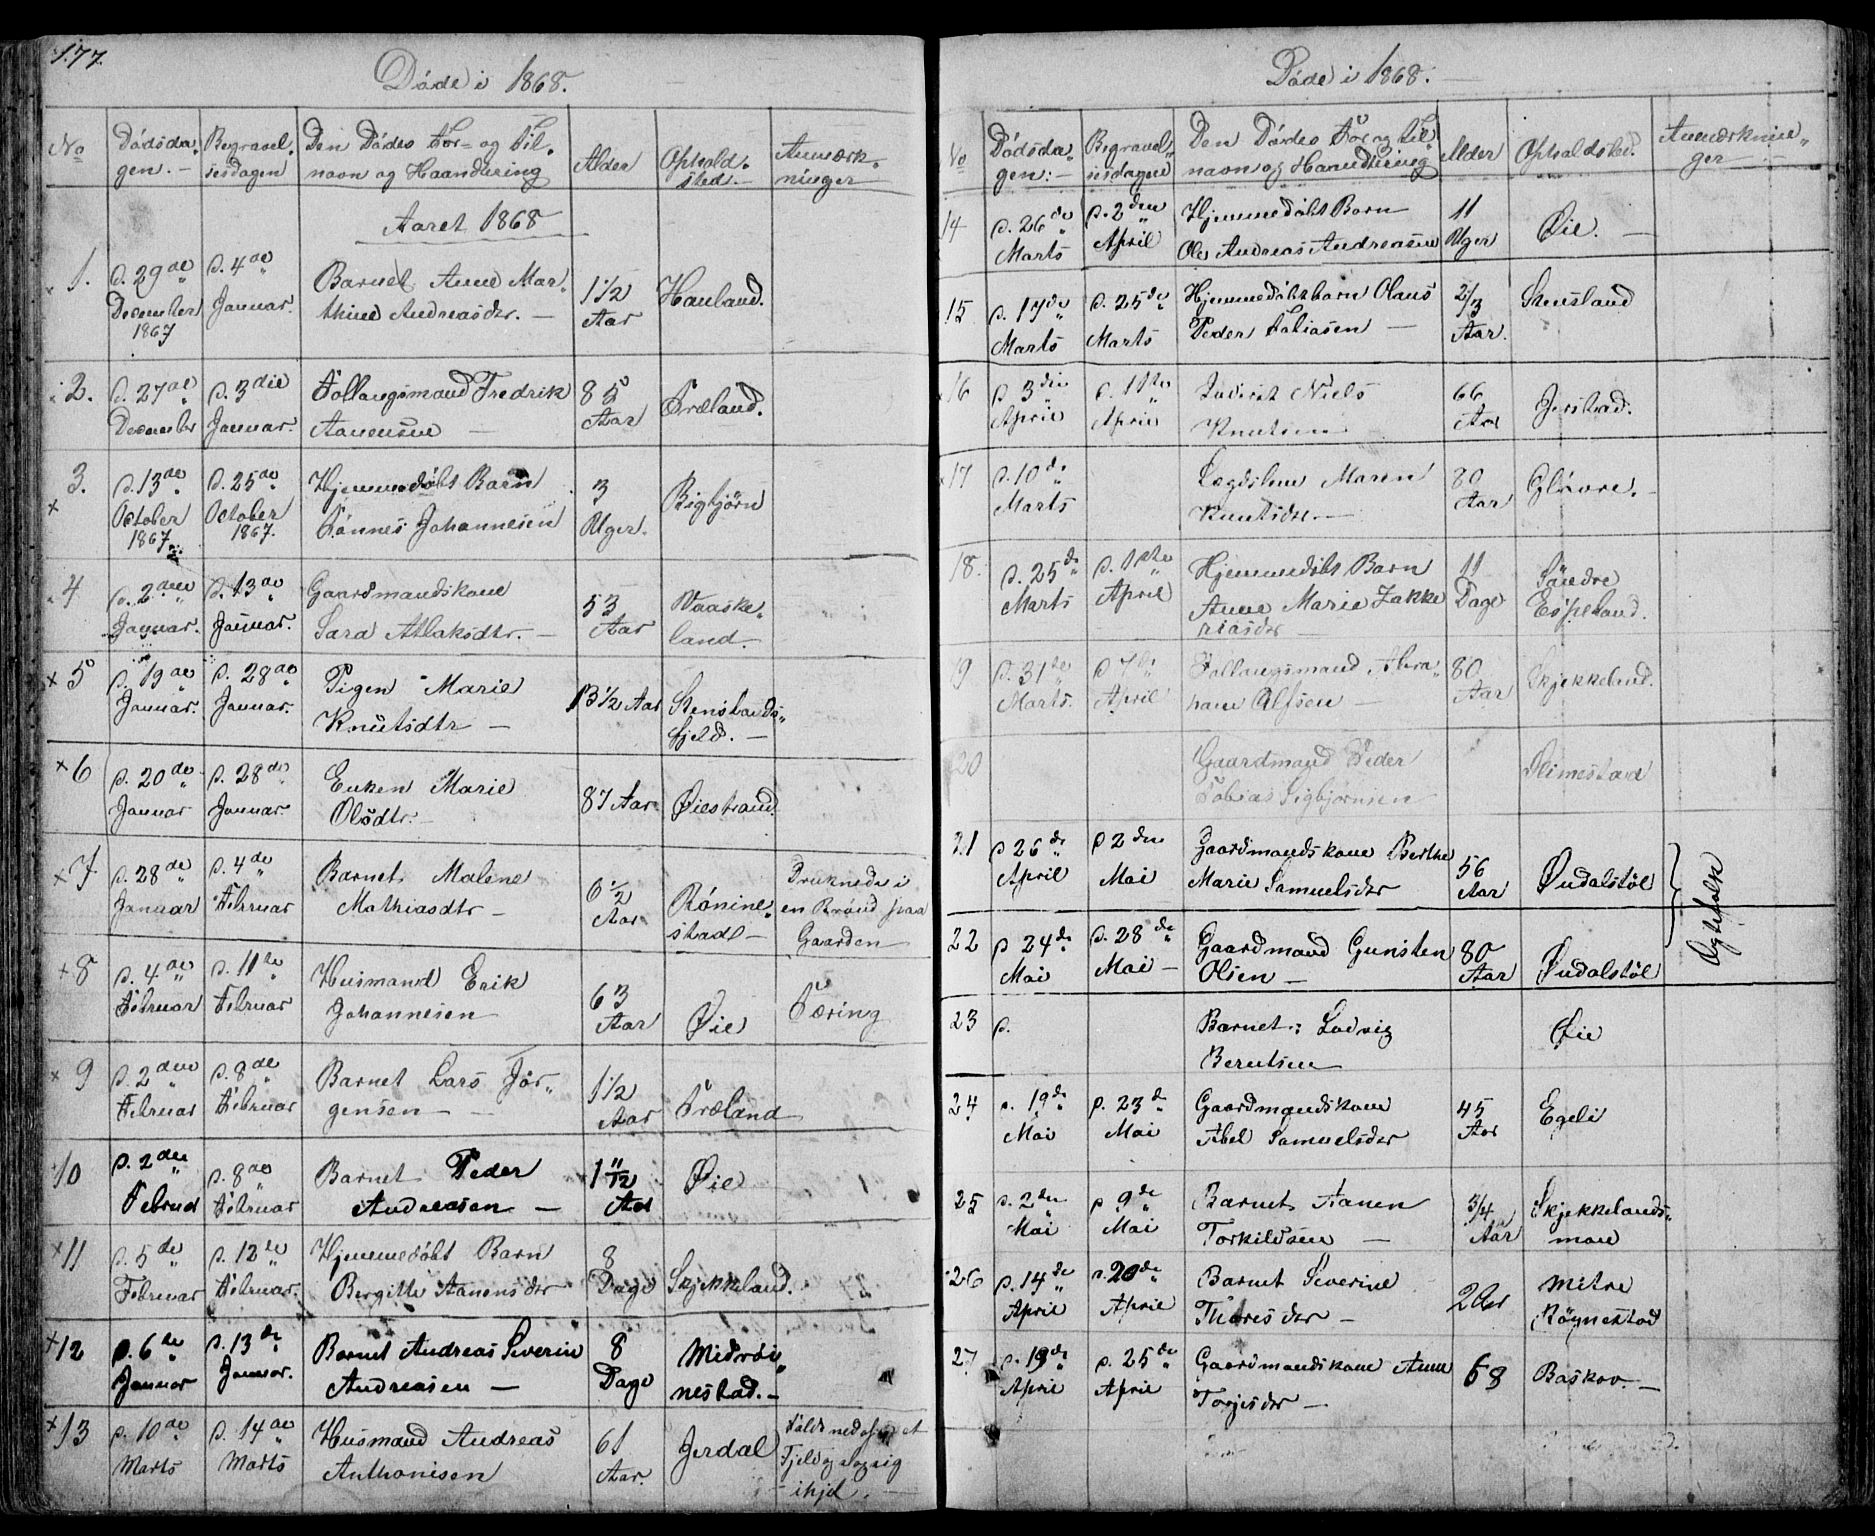 177.
Døde i 1868.
No
Dødsda-
gen.
Begravel-
sesdagen
Den Dødes For- og Til-
navn og Haandtering
Alder
Ophold-
sted.
Anmærk-
ninger
Aaret 1868
1.
d. 29de
December
1867
d. 4de
Januar.
Barnet Anne Mar-
thine Andreasdr.
1 1/2
Aar
Hauland.
2.
d. 27de
December
d. 3die
Januar.
Follaugsmand Fredrik
Aanensen
85
Aar
Træland.
3.
d. 13de
October
1867
d. 25de
October
1867.
Hjemmedøbt Barn
Tønnes Johannesen
3
Uger.
Bigbjørn
4
d. 2den
Januar.
d. 13de
Januar.
Gaardmandskone
Sara Atlaksdtr.
53
Aar
Vaaske-
land
5
d. 19de
Januar.
d. 28de
Januar.
Pigen Marie
Knutsdtr
13 1/2 Aar
Stenslands-
fjeld.
6
d. 20de
Januar
d. 28de
Januar.
Enken Marie
Olsdtr.
87 Aar
Øiestrand.
7
d. 28de
Januar
d. 4de
Februar
Barnet Malene
Mathiasdtr
6 1/2
Aar
Rønine-
stad
Druknede i
en Brønd paa
Gaarden
8
d. 4de
Februar
d. 11te
Februar
Husmand Erik
Johannesen
63
Aar
Øie
Tæring
9
d. 2den
Februar
d. 8de
Februar
Barnet Lars Jør-
gensen
1 1/2
Aar
Træland
10
d. 2den
Februar
d. 8de
Februar
Barnet Peder
Andreasen
1 11/12
Aar
Øie
11
d. 5de
Februar
d. 12te
Februar.
Hjemmedøbt Barn
Bergitte Aanensdr
8
Dage
Skjekkeland.
12
d. 6te
Januar
d. 13de
Januar.
Barnet Andreas Severin
Andreasen
8
Dage
Midrøi-
nestad.
13
d. 10de
Marts
d. 14de
Marts
Husmand Andreas
Anthonisen
61
Aar.
Jerdal
Faldt ned af et
Fjeld og slog sig
ihjel.
Døde i 1868.
No
Dødsda-
gen:
Begravel-
sesdagen
Den Dødes For og Til-
navn og Haandtering
Alder
Opholdsted.
Anmærknin-
ger
14
d. 26de
Marts
d. 2den
April
Hjemmedøbt Barn
Ole Andreas Andreasen
11
Uger
Øie.
15
d. 17de
Marts
d. 25de
Marts
Hjemmedøbt barn Olaus
Peder Tobiasen
2/3
Aar.
Stensland
16
d. 3die
April
d. 11te
April
Inderst Niels
Knutsen
66
Aar
Jerstad.
17
d. 10de
Marts
Lægdslem Maren
Knutsdr.
80
Aar
Gløvre.
18.
d. 25de
Marts
d. 1ste
April
Hjemmedøbt Barn
Anne Marie Zakke
riasdr
11
Dage
Søndre
Espeland.
19
d. 31te
Marts.
d 7de
April
Follaugsmand Abra-
ham Olfsen
80
Aar
Skjekkeland.
20
Gaardmand Peder
Tobias Sigbjørnsen
Slimestad
21
d 26de
April
d 2den
Mai
Gaardmandskone Berthe
Marie Samuelsdr
56
Aar
Øudalstøl
22
d 24de
Mai
d. 28de
Mai
Gaardmand Gunsten
Olsen
80
Aar
Øudalstøl
Ægtefolk
23
d.
Barnet: Ludvig
Berntsen
Øie
24
d. 19de
Mai
d. 23de
Mai
Gaardmandskone
Abel Samuelsdr
45
Aar
Egeli
25
d. 2den
Mai
d 9de
Mai
Barnet Aanen
Torkildsen
3/4
Aar
Skjekkelands-
moen
26
d. 14de
April
d. 20de
April
Barnet Severine
Thoresdr
2 Aar
Mitre
Røynestad
27
d. 19de
April
d. 25de
April
Gaardmandskone Anne
Torjesdr
68
Baskov.